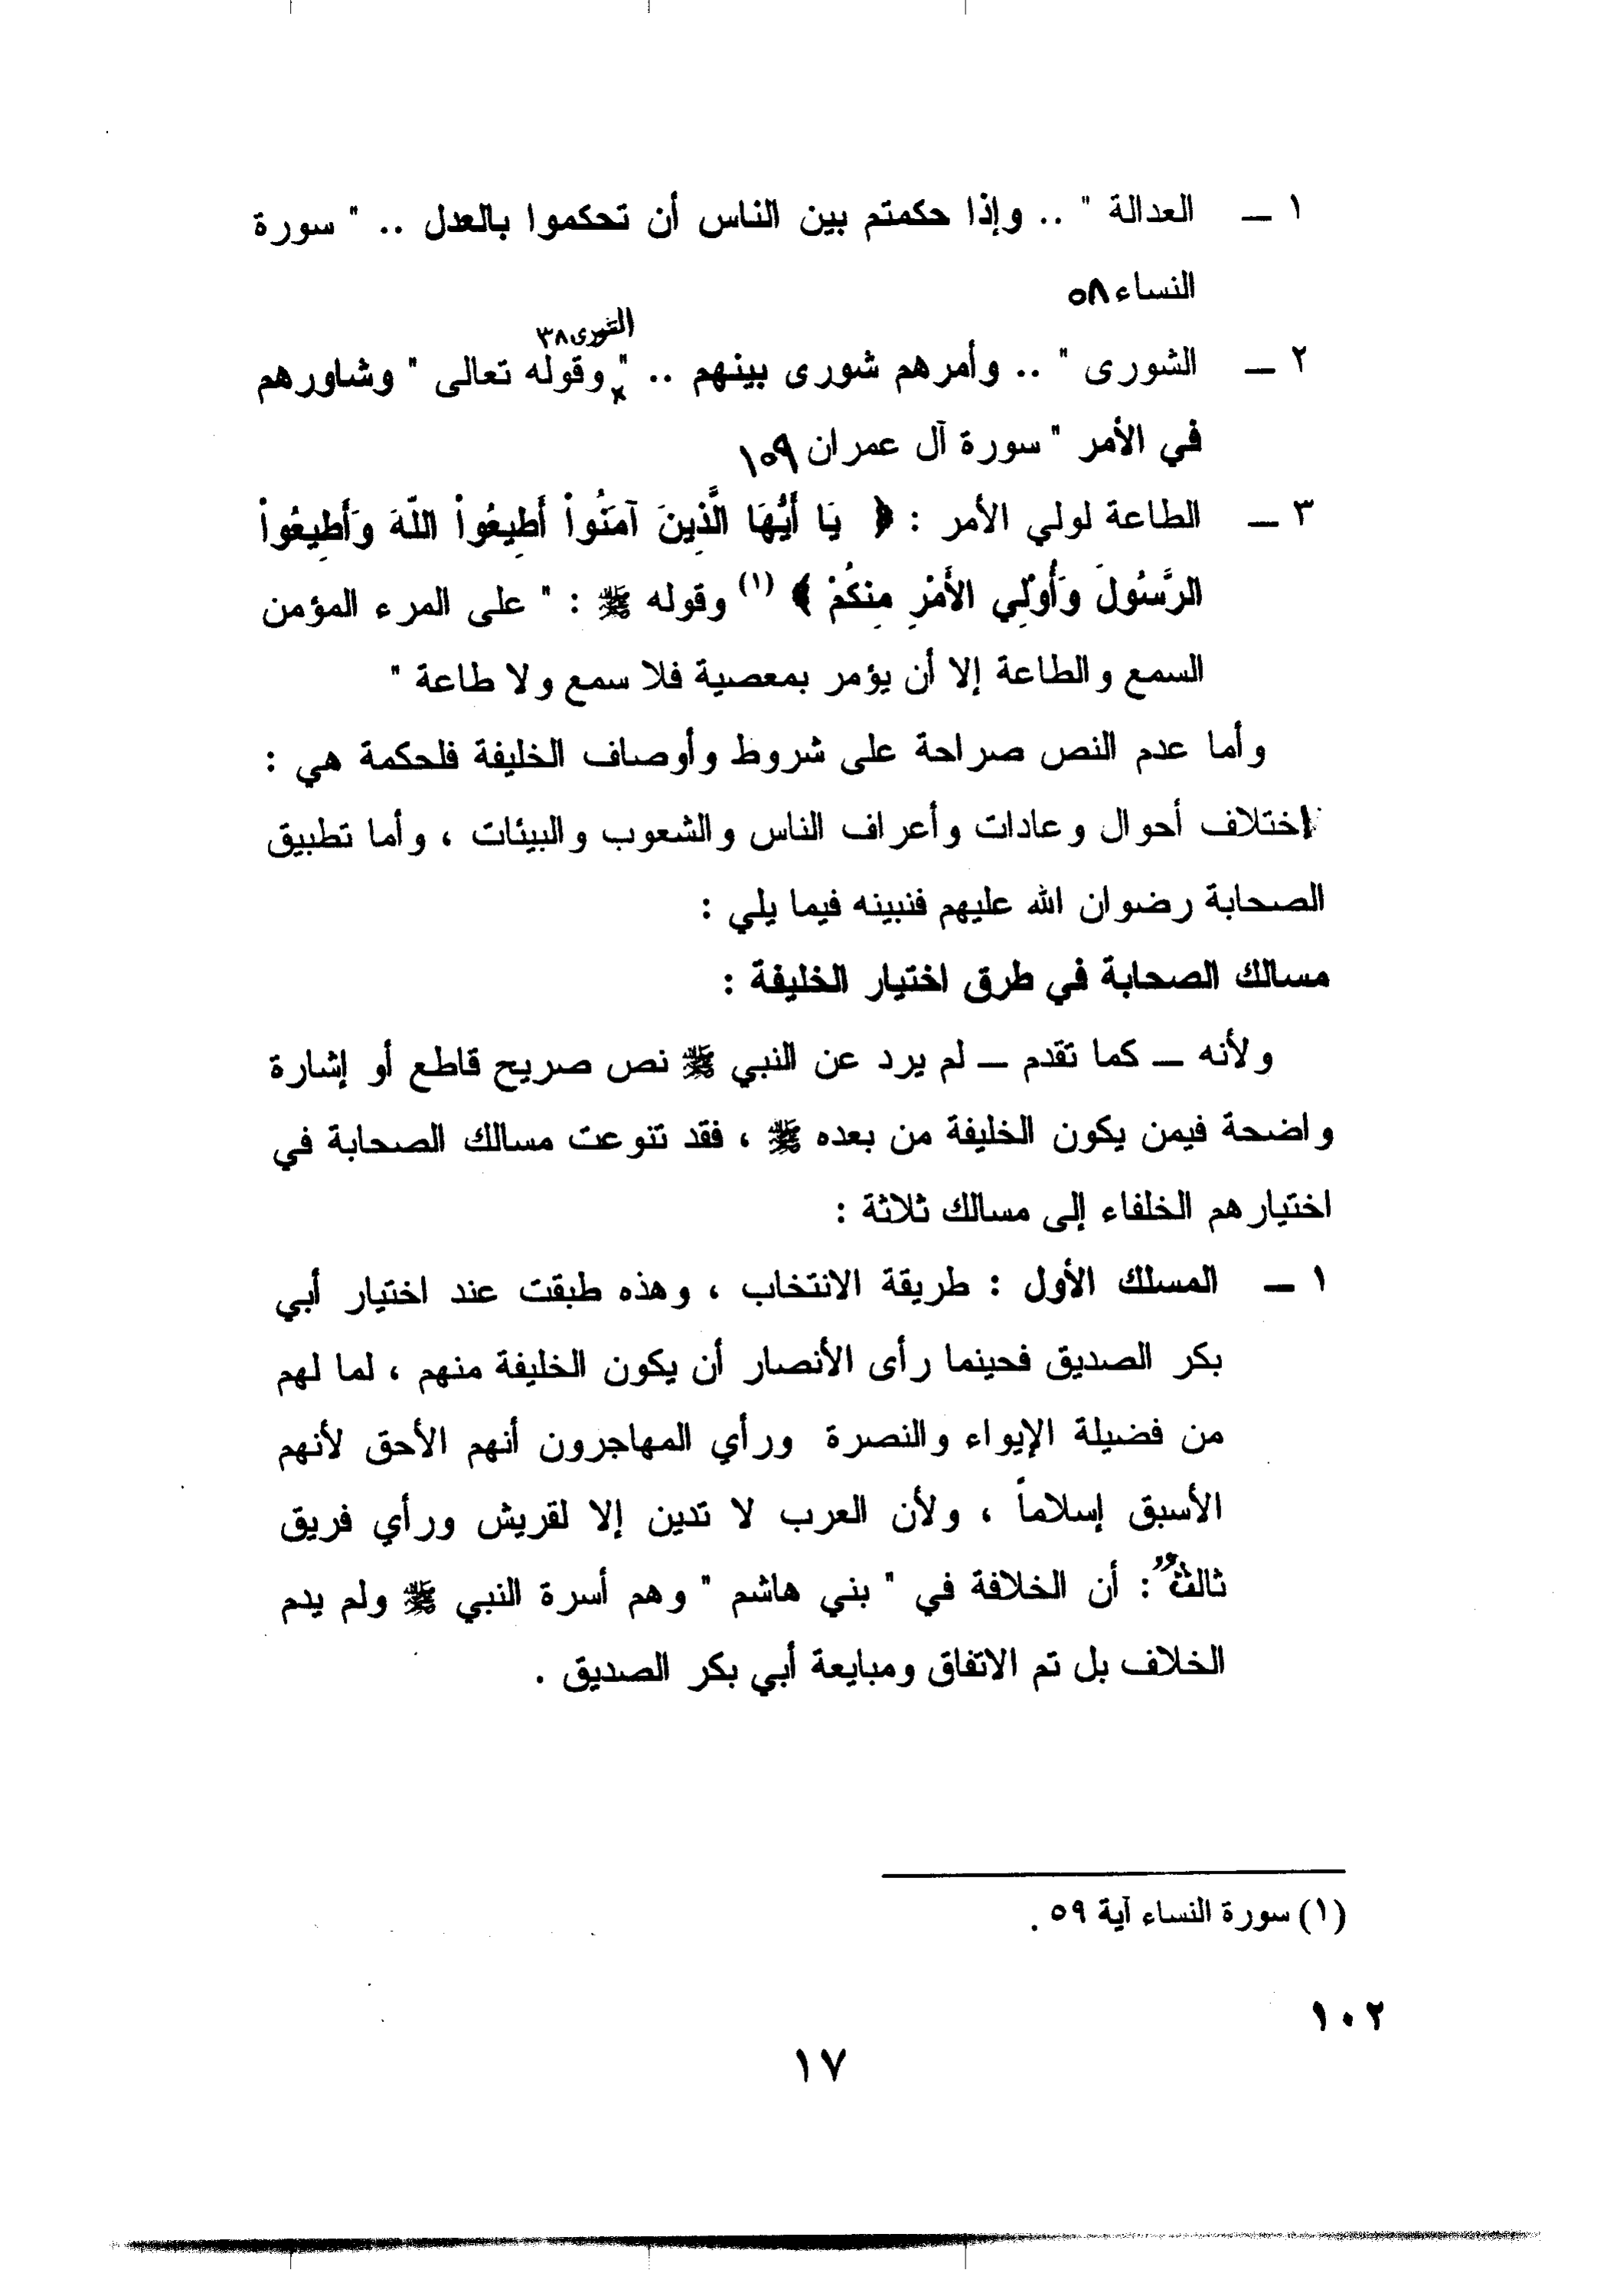 ١ – العدالة " .. وإذا حكمتم بين الناس أن تحكموا بالعدل .. " سورة
النساء ٥٨
الشورى ٣٨
٢ – الشورى " .. وأمرهم شورى بينهم .. " وقوله تعالى " وشاورهم
في الأمر " سورة آل عمران ١٥٩
٣ – الطاعة لولي الأمر : ﴿ يَا أَيُّهَا الَّذِينَ آمَنُواْ أَطِيعُواْ اللّهَ وَأَطِيعُواْ
الرَّسُولَ وَأُوْلِي الأَمْرِ مِنكُمْ ﴾ (١) وقوله ﷺ : " على المرء المؤمن
السمع والطاعة إلا أن يؤمر بمعصية فلا سمع ولا طاعة "
وأما عدم النص صراحة على شروط وأوصاف الخليفة فلحكمة هي :
اختلاف أحوال وعادات وأعراف الناس والشعوب والبيئات ، وأما تطبيق
الصحابة رضوان الله عليهم فنبينه فيما يلي :
مسالك الصحابة في طرق اختيار الخليفة :
ولأنه – كما تقدم – لم يرد عن النبي ﷺ نص صريح قاطع أو إشارة
واضحة فيمن يكون الخليفة من بعده ﷺ ، فقد تنوعت مسالك الصحابة في
اختيارهم الخلفاء إلى مسالك ثلاثة :
١ – المسلك الأول : طريقة الانتخاب ، وهذه طبقت عند اختيار أبي
بكر الصديق فحينما رأى الأنصار أن يكون الخليفة منهم ، لما لهم
من فضيلة الإيواء والنصرة ورأي المهاجرون أنهم الأحق لأنهم
الأسبق إسلاماً ، ولأن العرب لا تدين إلا لقريش ورأي فريق
ثالث : أن الخلافة في " بني هاشم " وهم أسرة النبي ﷺ ولم يدم
الخلاف بل تم الاتفاق ومبايعة أبي بكر الصديق .
(١) سورة النساء آية ٥٩ .
١٠٢
١٧